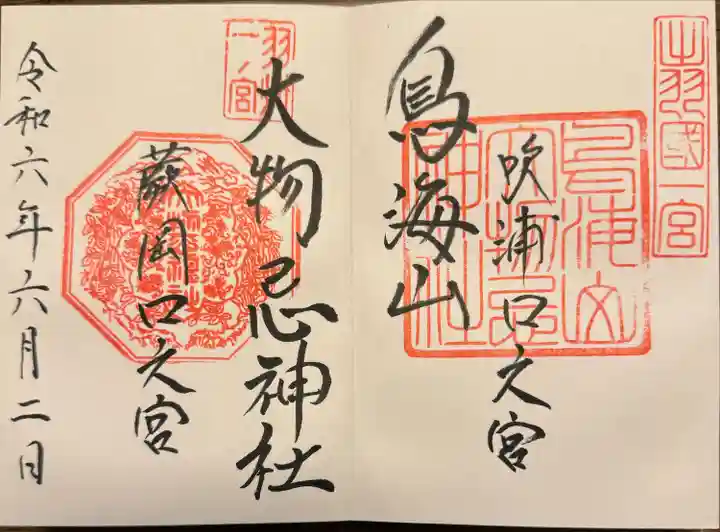 出羽國一宮
吹浦口之宮
鳥海山
鳥海山
大物忌
神社
大物忌神社
羽州
一ノ宮
蕨岡口之宮
令和六年六月二日